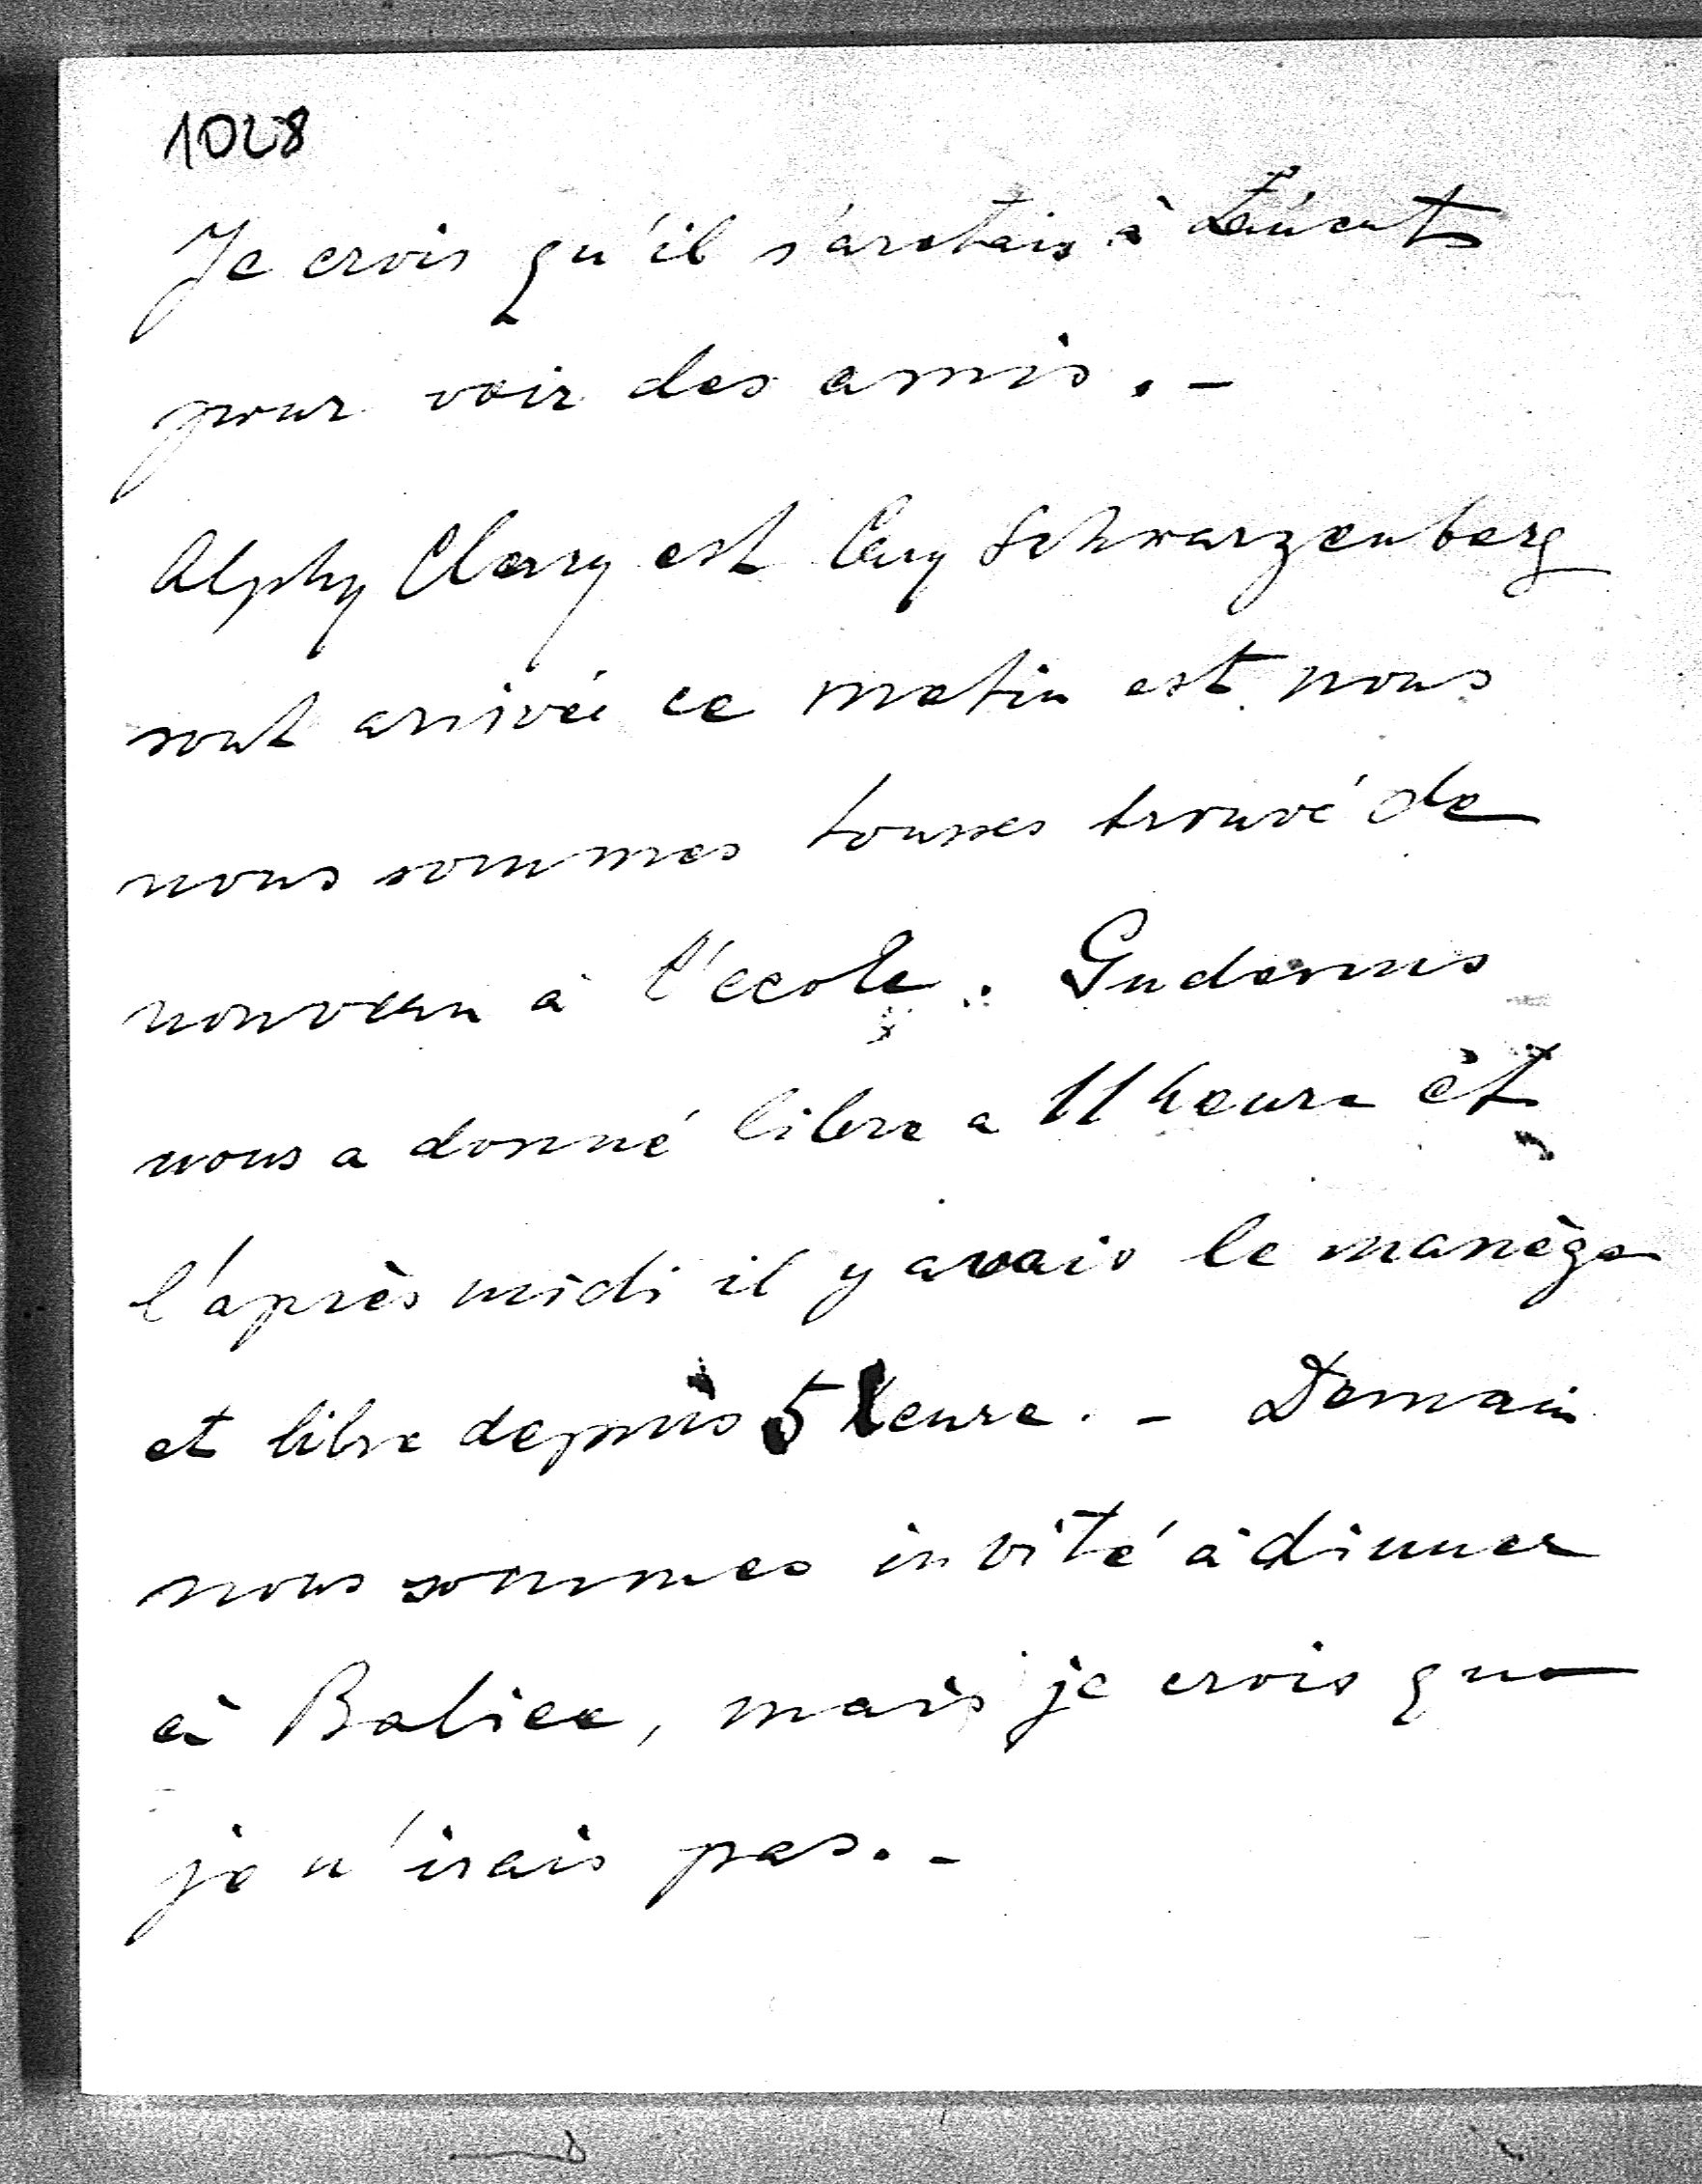 1028
Je crois qu'il s'arctais à Łańcut
pour voir des amis. -
Alphy Clary est Schwarzenberg
sont arrivée ce matin est nous
nous sommes tousses trouvé de
nouveau à l'ecole. Gudenus
nous a donné libre a 11 heure èt
l'après midi il y avais le manège
et libre depuis 5 heure. - Demain
nous sommes invité à dinner
à Balice, mais je crois que
je n'irais pas. -